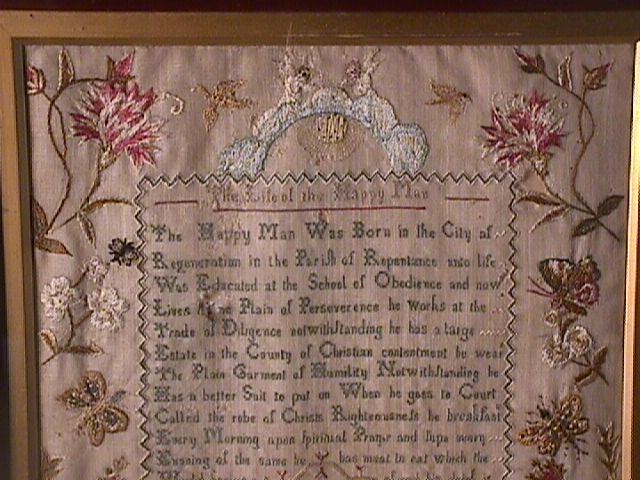 The Life of the Happy Man
The Happy Man Was Born in the City of
Regeneration in the Parish of Repentance unto life
Was Educated at the School of Obedience and now
Lives the Plain of Perseverence he Works at the
Trade of Diligence notwithstanding he has a large
Estate in the County of Christian contentment he wear
The Plain Garment of Humility Notwithstanding he
Has a better Suit to put on When he goes to Court
Called the robe of Christs Righteousness he breakfast
Every Morning upon Spiritual Prayer and Sups every
Evening of the same he has meat to eat which the